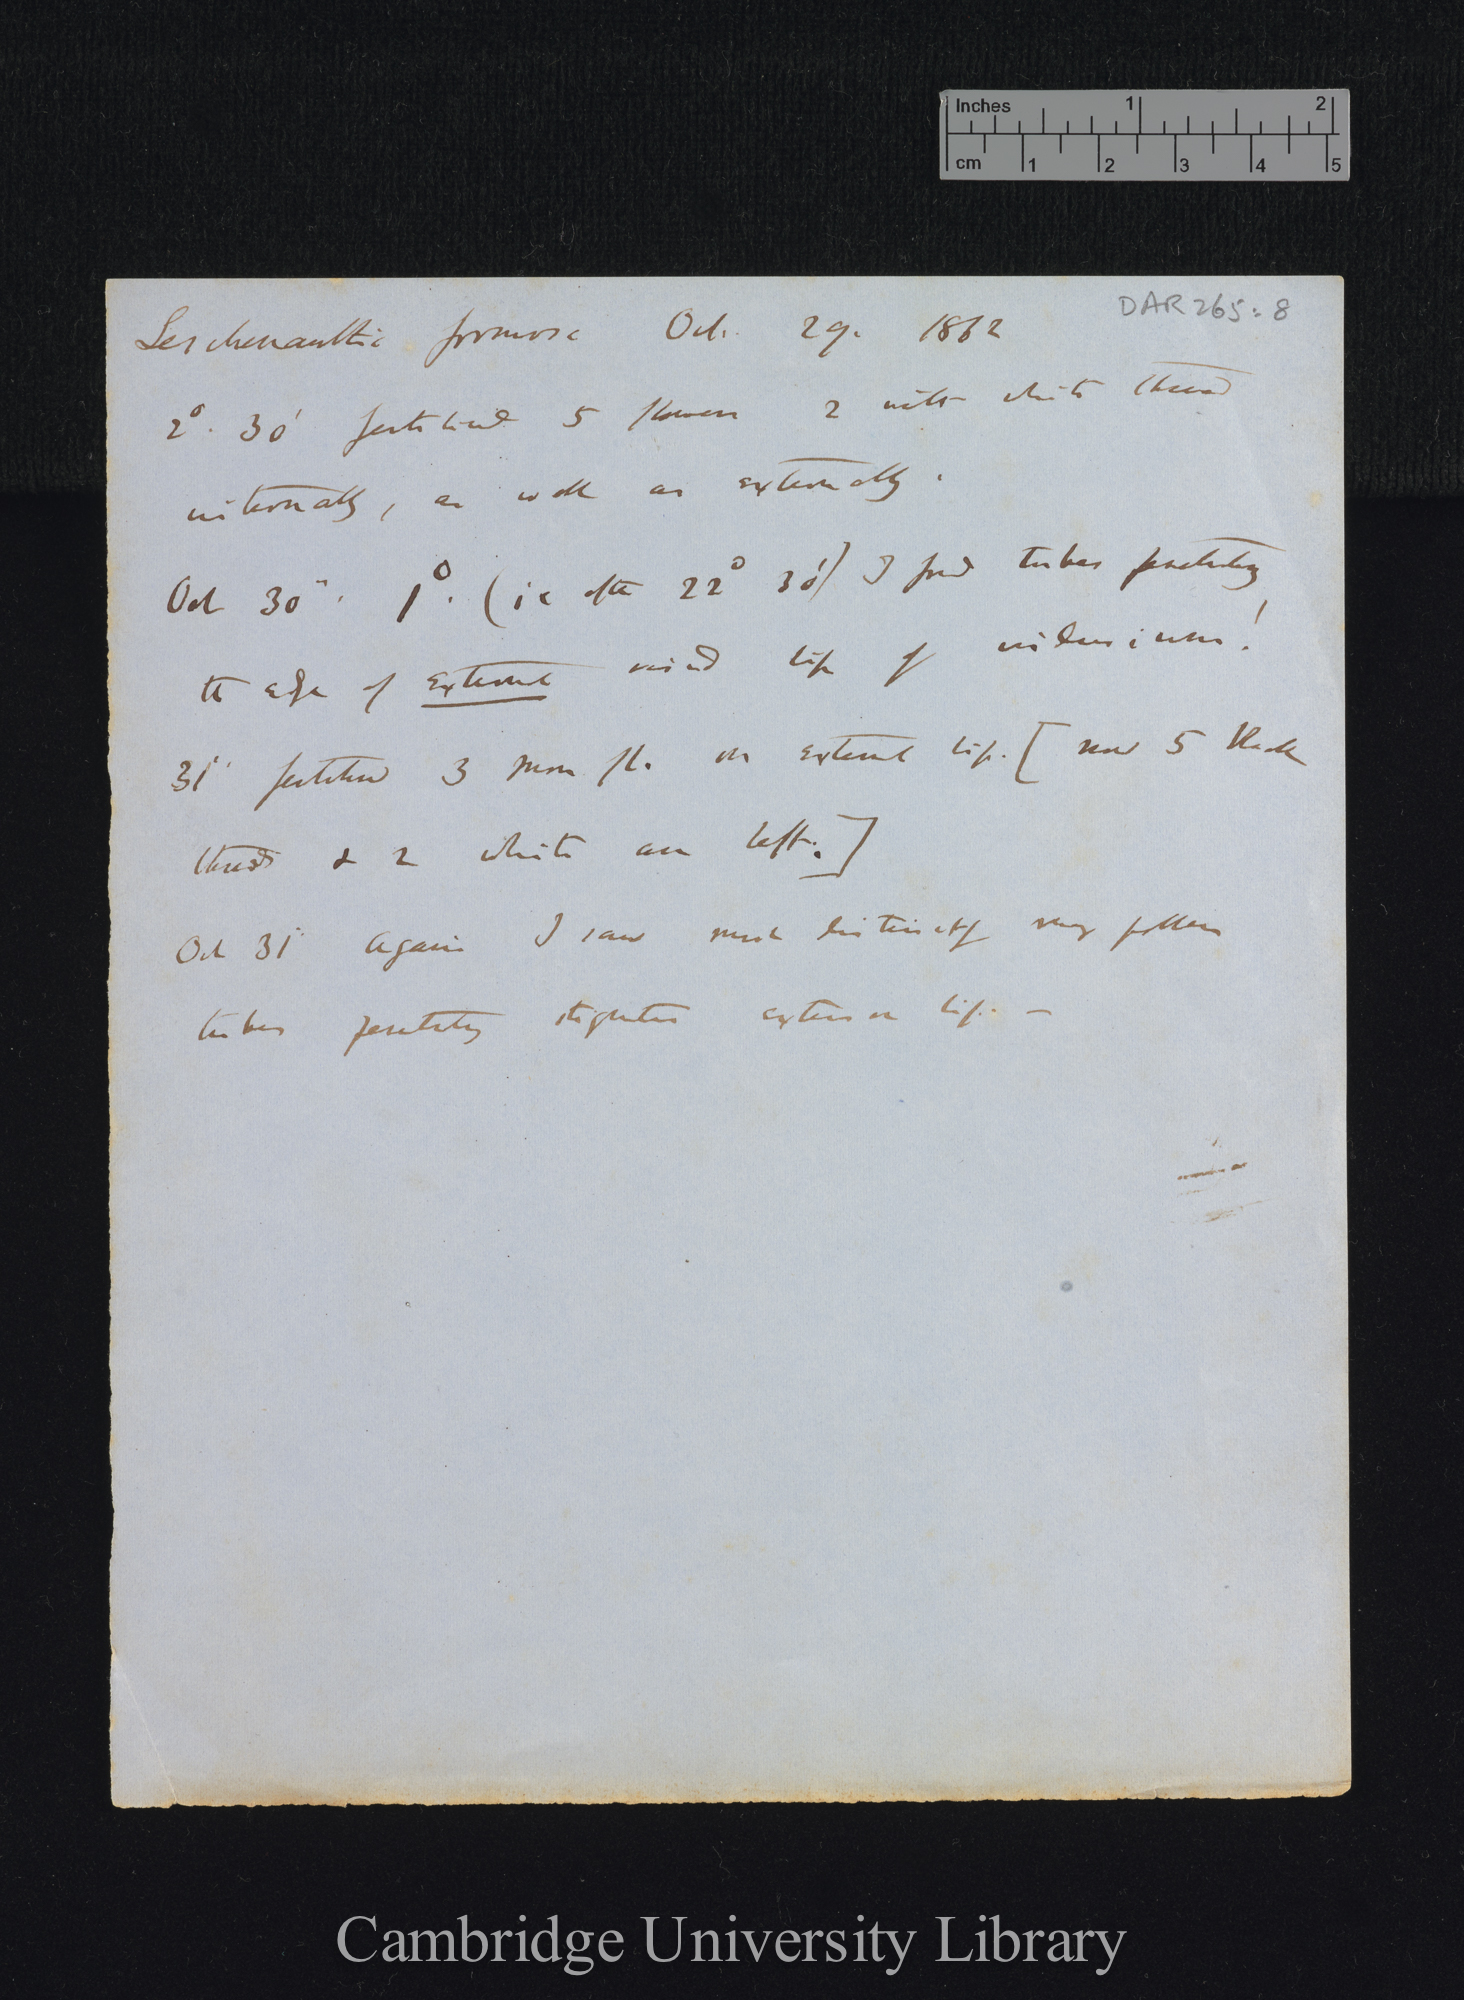 Inches 1 2
cm 1 2 3 4 5
DAR 265: 8
Leschenaultia formosa Oct. 29. 1862
2°. 30' fertilised 5 flowers 2 with white thread
internally, as well as externally.
Oct 30th. 1°. (ie after 22° 30') I found tubes penetrating
the edge of external lip of indusium!
31st fertilised 3 more fl. on external lip. [now 5 black
threads & 2 white are left.]
Oct 31st Again I saw most distinctly many pollen
tubes penetrating stigmatic exterior lip. —
Cambridge University Library